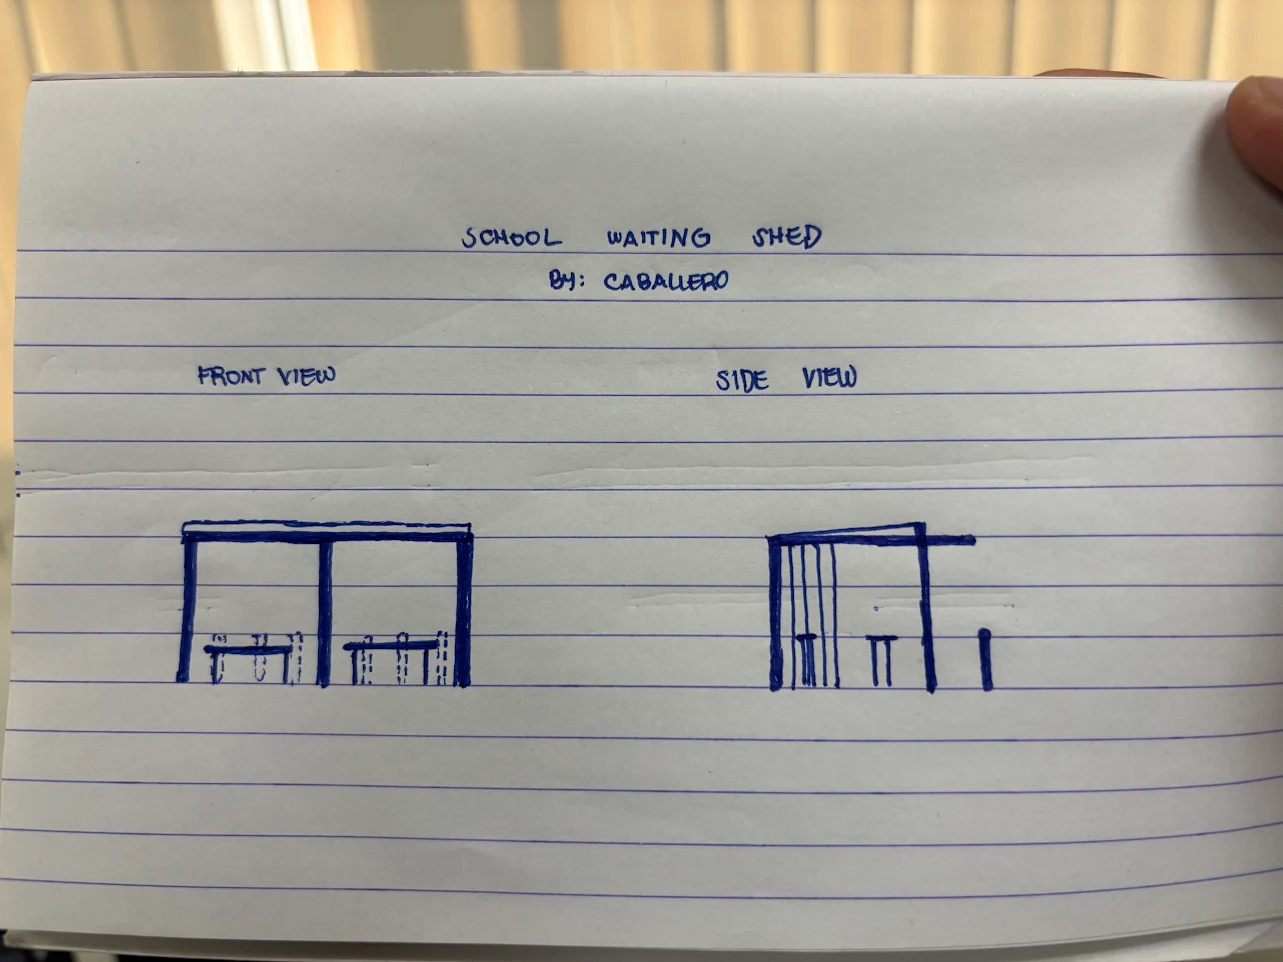 SCHOOL WAITING SHED
BY: CABALLERO
FRONT VIEW
SIDE VIEW